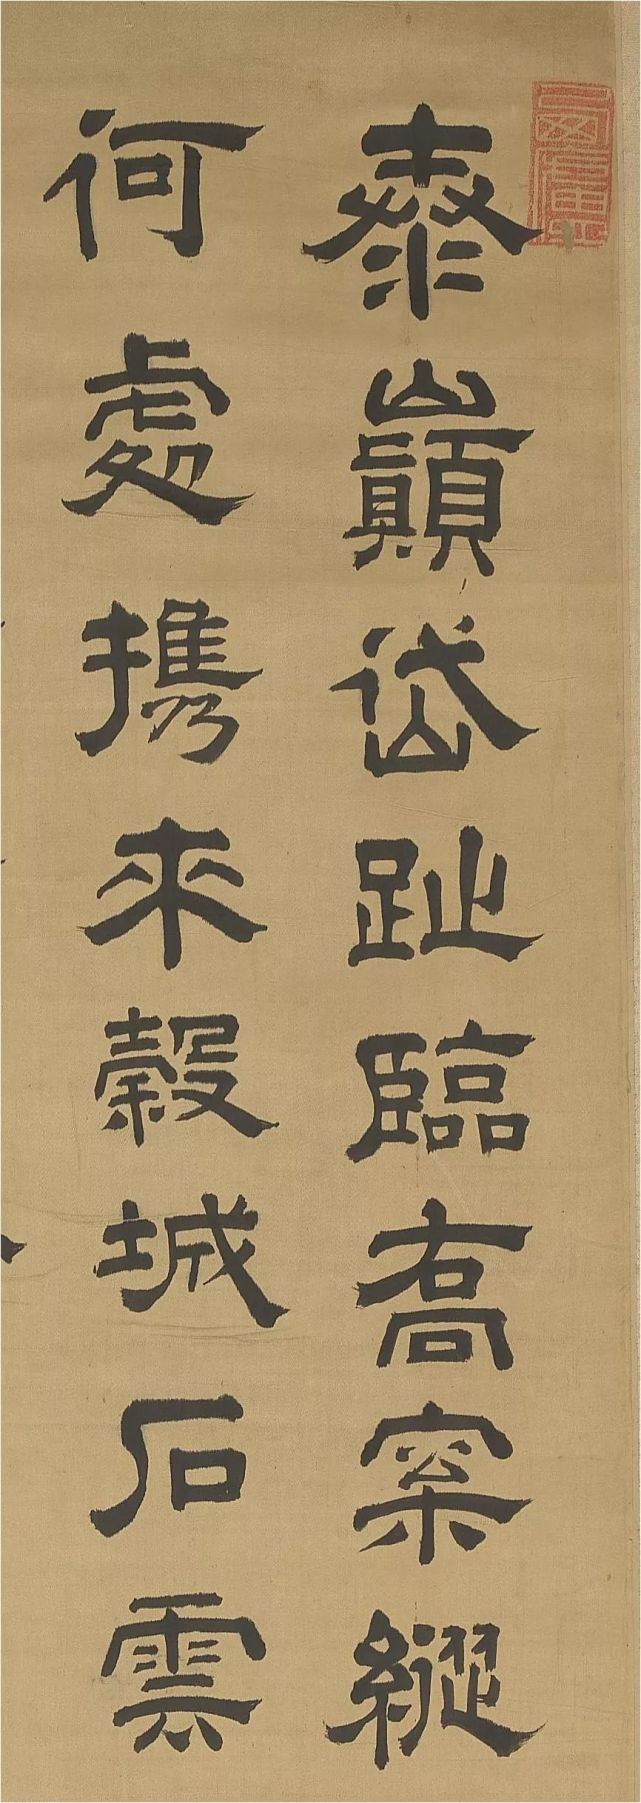 泰巔岱趾臨喬案縱
何處携來穀城石雲